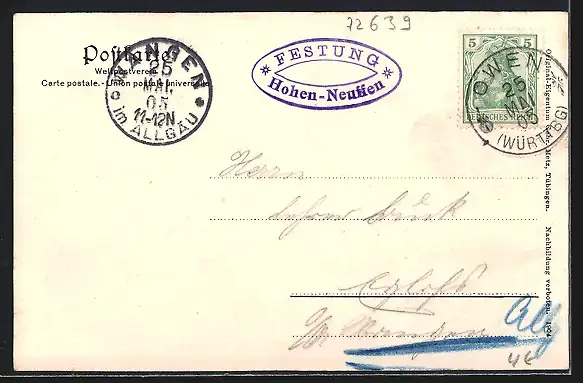 72639
Postkarte
Weltpostverein
Carte postale. - Union postale universelle
WANGEN
25
MAI
05
11-12N
im ALLGÄU
FESTUNG
Hohen-Neuffen
5 5
DEUTSCHES REICH
OWEN
25
MAI
05
(WÜRTTBG)
Original-Eigentum Metz, Tübingen. Nachbildung verboten. 1904
Herrn
Lehrer
Eglofs
Wangen
4€